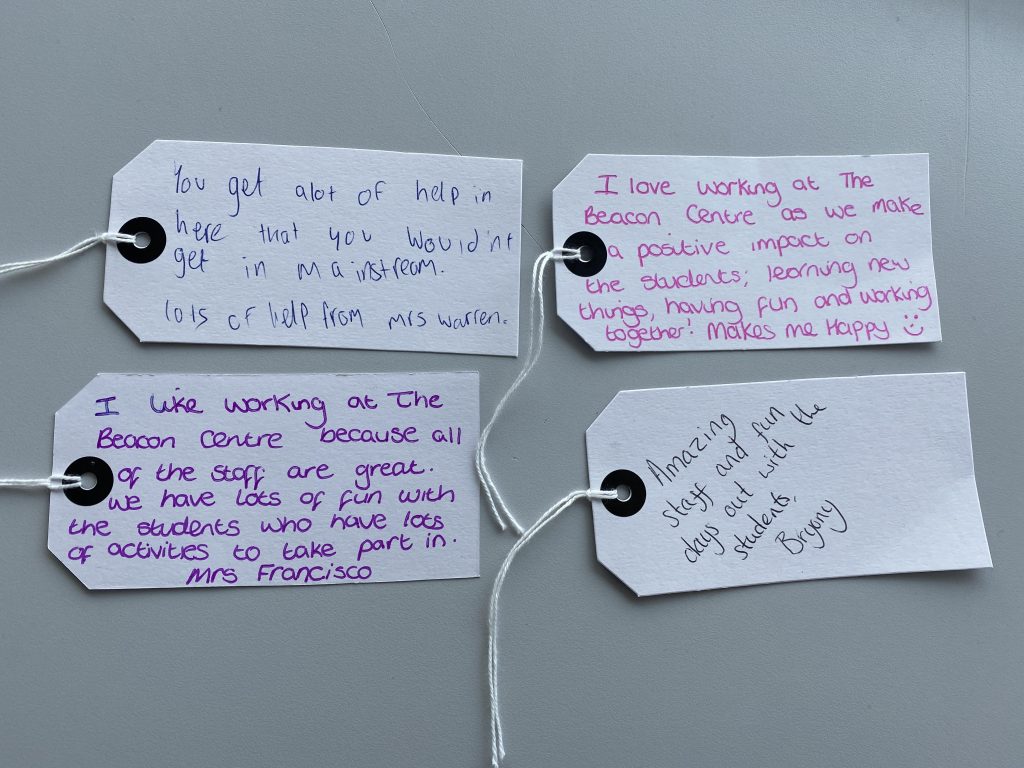 You get alot of help in
here that you would'nt
get in mainstream.
lots of help from mrs warren.
I love working at The
Beacon Centre as we make
a positive impact on
the students; learning new
things, having fun, and working
together! Makes me Happy
I like working at The
Beacon Centre because all
of the staff are great.
We have lots of fun with
the students who have lots
of activities to take part in.
Mrs Francisco
Amazing
staff and fun
days out with the
students.
Bryony